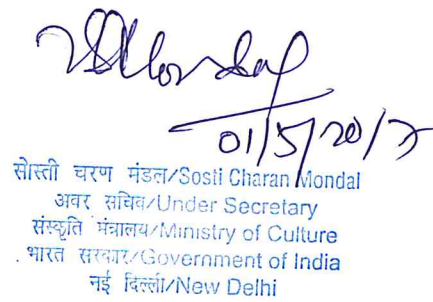 01/5/20
सोस्ती चरण मंडल/Sosti Charan Mondal
अवर सचिव/Under Secretary
संस्कृति मंत्रालय/Ministry of Culture
भारत सरकार/Government of India
नई दिल्ली/New Delhi